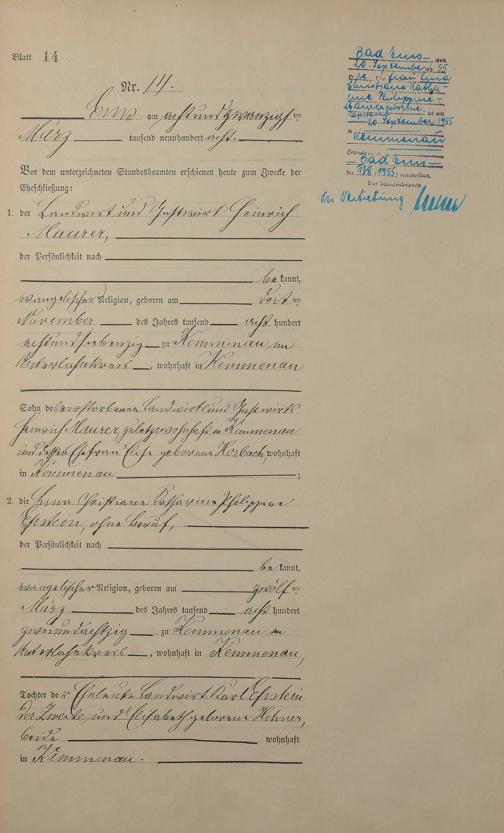 Blatt 14
Nr. 14.
Ems am achtundzwanzigsten
März tausend neunhundert acht.
Vor dem unterzeichneten Standesbeamten erschienen heute zum Zwecke der
Eheschließung:
1. der Landwirt und Gastwirt Heinrich
Maurer,
der Persönlichkeit nach
bekannt,
evangelischer Religion, geboren am dritten
November des Jahres tausend acht hundert
achtundsiebenzig zu Kemmenau im
Unterlahnkreis, wohnhaft in Kemmenau
Sohn des verstorbenen Landwirts und Gastwirts
Heinrich Maurer, zuletzt wohnhaft in Kemmenau
und dessen Ehefrau Elise geborene Korbach, wohnhaft
in Kemmenau;
2. die Lina Christiane Katharine Philippine
Epstein, ohne Beruf,
der Persönlichkeit nach
bekannt,
evangelischer Religion, geboren am zwölften
März des Jahres tausend acht hundert
zweiundachtzig zu Kemmenau im
Unterlahnkreis, wohnhaft in Kemmenau,
Tochter der Eheleute Landwirt Karl Epstein
der Zweite, und Elisabeth geborene Hehner,
beide wohnhaft
in Kemmenau.
Bad Ems den
20. September 55
Die Frau Lina
Christiane Katha-
rine Philippine
Maurer geborene
Epstein ist am
20. September 1955
in
Kemmenau
Bad Ems
Nr. 1955) verstorben.
Der Standesbeamte
In Vertretung